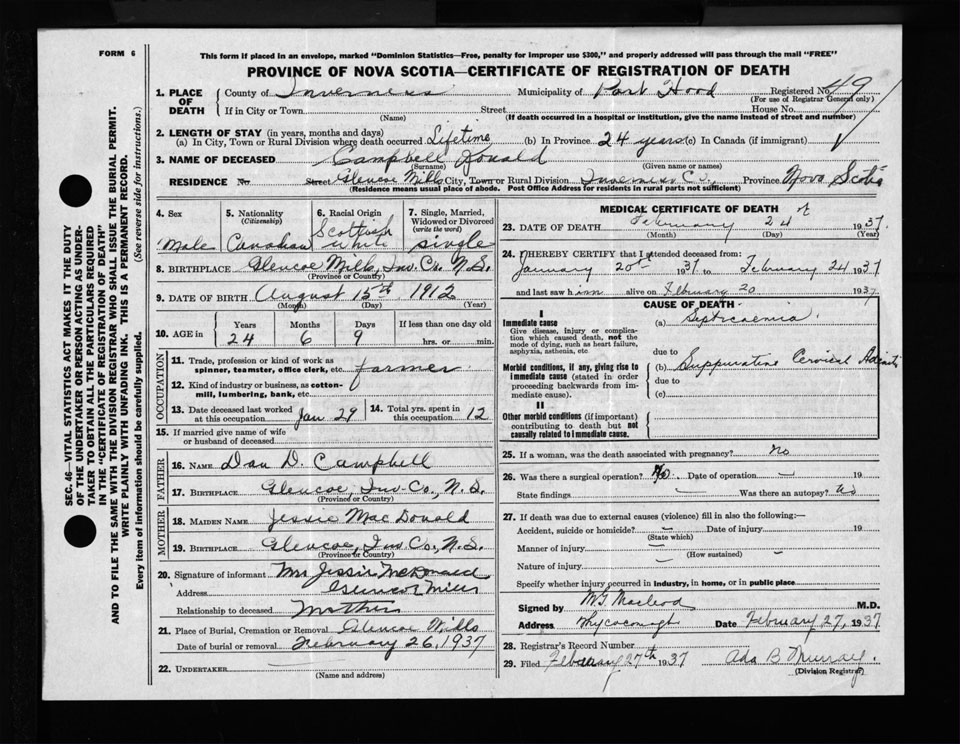 FORM 6
This form if placed in an envelope, marked "Dominion Statistics—Free, penalty for improper use $300," and properly addressed will pass through the mail "FREE"
PROVINCE OF NOVA SCOTIA—CERTIFICATE OF REGISTRATION OF DEATH
1. PLACE OF DEATH County of Inverness Municipality of Port Hood Registered No. 49
(For use of Registrar General only)
If in City or Town Street House No.
(Name) (If death occurred in a hospital or institution, give the name instead of street and number)
2. LENGTH OF STAY (in years, months and days)
(a) In City, Town or Rural Division where death occurred Lifetime (b) In Province 24 years (c) In Canada (if immigrant)
3. NAME OF DECEASED Campbell Donald
(Surname) (Given name or names)
RESIDENCE No. Street Glencoe Mills City, Town or Rural Division Inverness Co., Province Nova Scotia
(Residence means usual place of abode. Post Office Address for residents in rural parts not sufficient)
4. Sex 5. Nationality (Citizenship) 6. Racial Origin 7. Single, Married, Widowed or Divorced (write the word)
Male Canadian Scottish white single
8. BIRTHPLACE Glencoe Mills, Inv. Co. N.S.
(Province or Country)
9. DATE OF BIRTH August 15th 1912
(Month) (Day) (Year)
10. AGE in Years Months Days If less than one day old
24 6 9 hrs. or min.
OCCUPATION
11. Trade, profession or kind of work as spinner, teamster, office clerk, etc. farmer
12. Kind of industry or business, as cotton-mill, lumbering, bank, etc.
13. Date deceased last worked at this occupation Jan 29 14. Total yrs. spent in this occupation 12
15. If married give name of wife or husband of deceased
FATHER
16. NAME Dan D. Campbell
17. BIRTHPLACE Glencoe, Inv. Co., N.S.
(Province or Country)
MOTHER
18. MAIDEN NAME Jessie MacDonald
19. BIRTHPLACE Glencoe, Inv Co., N.S.
(Province or Country)
20. Signature of informant Mrs Jessie McDonald
Address Glencoe Mills
Relationship to deceased Mother
21. Place of Burial, Cremation or Removal Glencoe Mills
Date of burial or removal February 26, 1937
22. UNDERTAKER —
(Name and address)
MEDICAL CERTIFICATE OF DEATH
23. DATE OF DEATH February 24 1937
(Month) (Day) (Year)
24. I HEREBY CERTIFY that I attended deceased from:
January 20th 1937 to February 24 1937
and last saw him alive on February 20 1937
CAUSE OF DEATH
I
Immediate cause (a) Septicaemia
Give disease, injury or complication which caused death, not the mode of dying, such as heart failure, asphyxia, asthenia, etc
due to
Morbid conditions, if any, giving rise to immediate cause (stated in order proceeding backwards from immediate cause).
(b) Suppurative Cervical
due to
(c)
II
Other morbid conditions (if important) contributing to death but not causally related to immediate cause.
25. If a woman, was the death associated with pregnancy? No
26. Was there a surgical operation? No. Date of operation — 19
State findings — Was there an autopsy? No
27. If death was due to external causes (violence) fill in also the following:—
Accident, suicide or homicide? — Date of injury — 19
(State which)
Manner of injury — —
(How sustained)
Nature of injury —
Specify whether injury occurred in industry, in home, or in public place
Signed by M.G. Macleod M.D.
Address Whycocomagh Date February 27, 1937
28. Registrar's Record Number
29. Filed February 27th 1937 Ada B Murray.
(Division Registrar)
SEC. 46—VITAL STATISTICS ACT MAKES IT THE DUTY
OF THE UNDERTAKER OR PERSON ACTING AS UNDER-
TAKER TO OBTAIN ALL THE PARTICULARS REQUIRED
IN THE "CERTIFICATE OF REGISTRATION OF DEATH"
AND TO FILE THE SAME WITH THE DIVISION REGISTRAR WHO SHALL ISSUE THE BURIAL PERMIT.
WRITE PLAINLY WITH UNFADING INK. THIS IS A PERMANENT RECORD.
Every item of information should be carefully supplied. (See reverse side for instructions.)